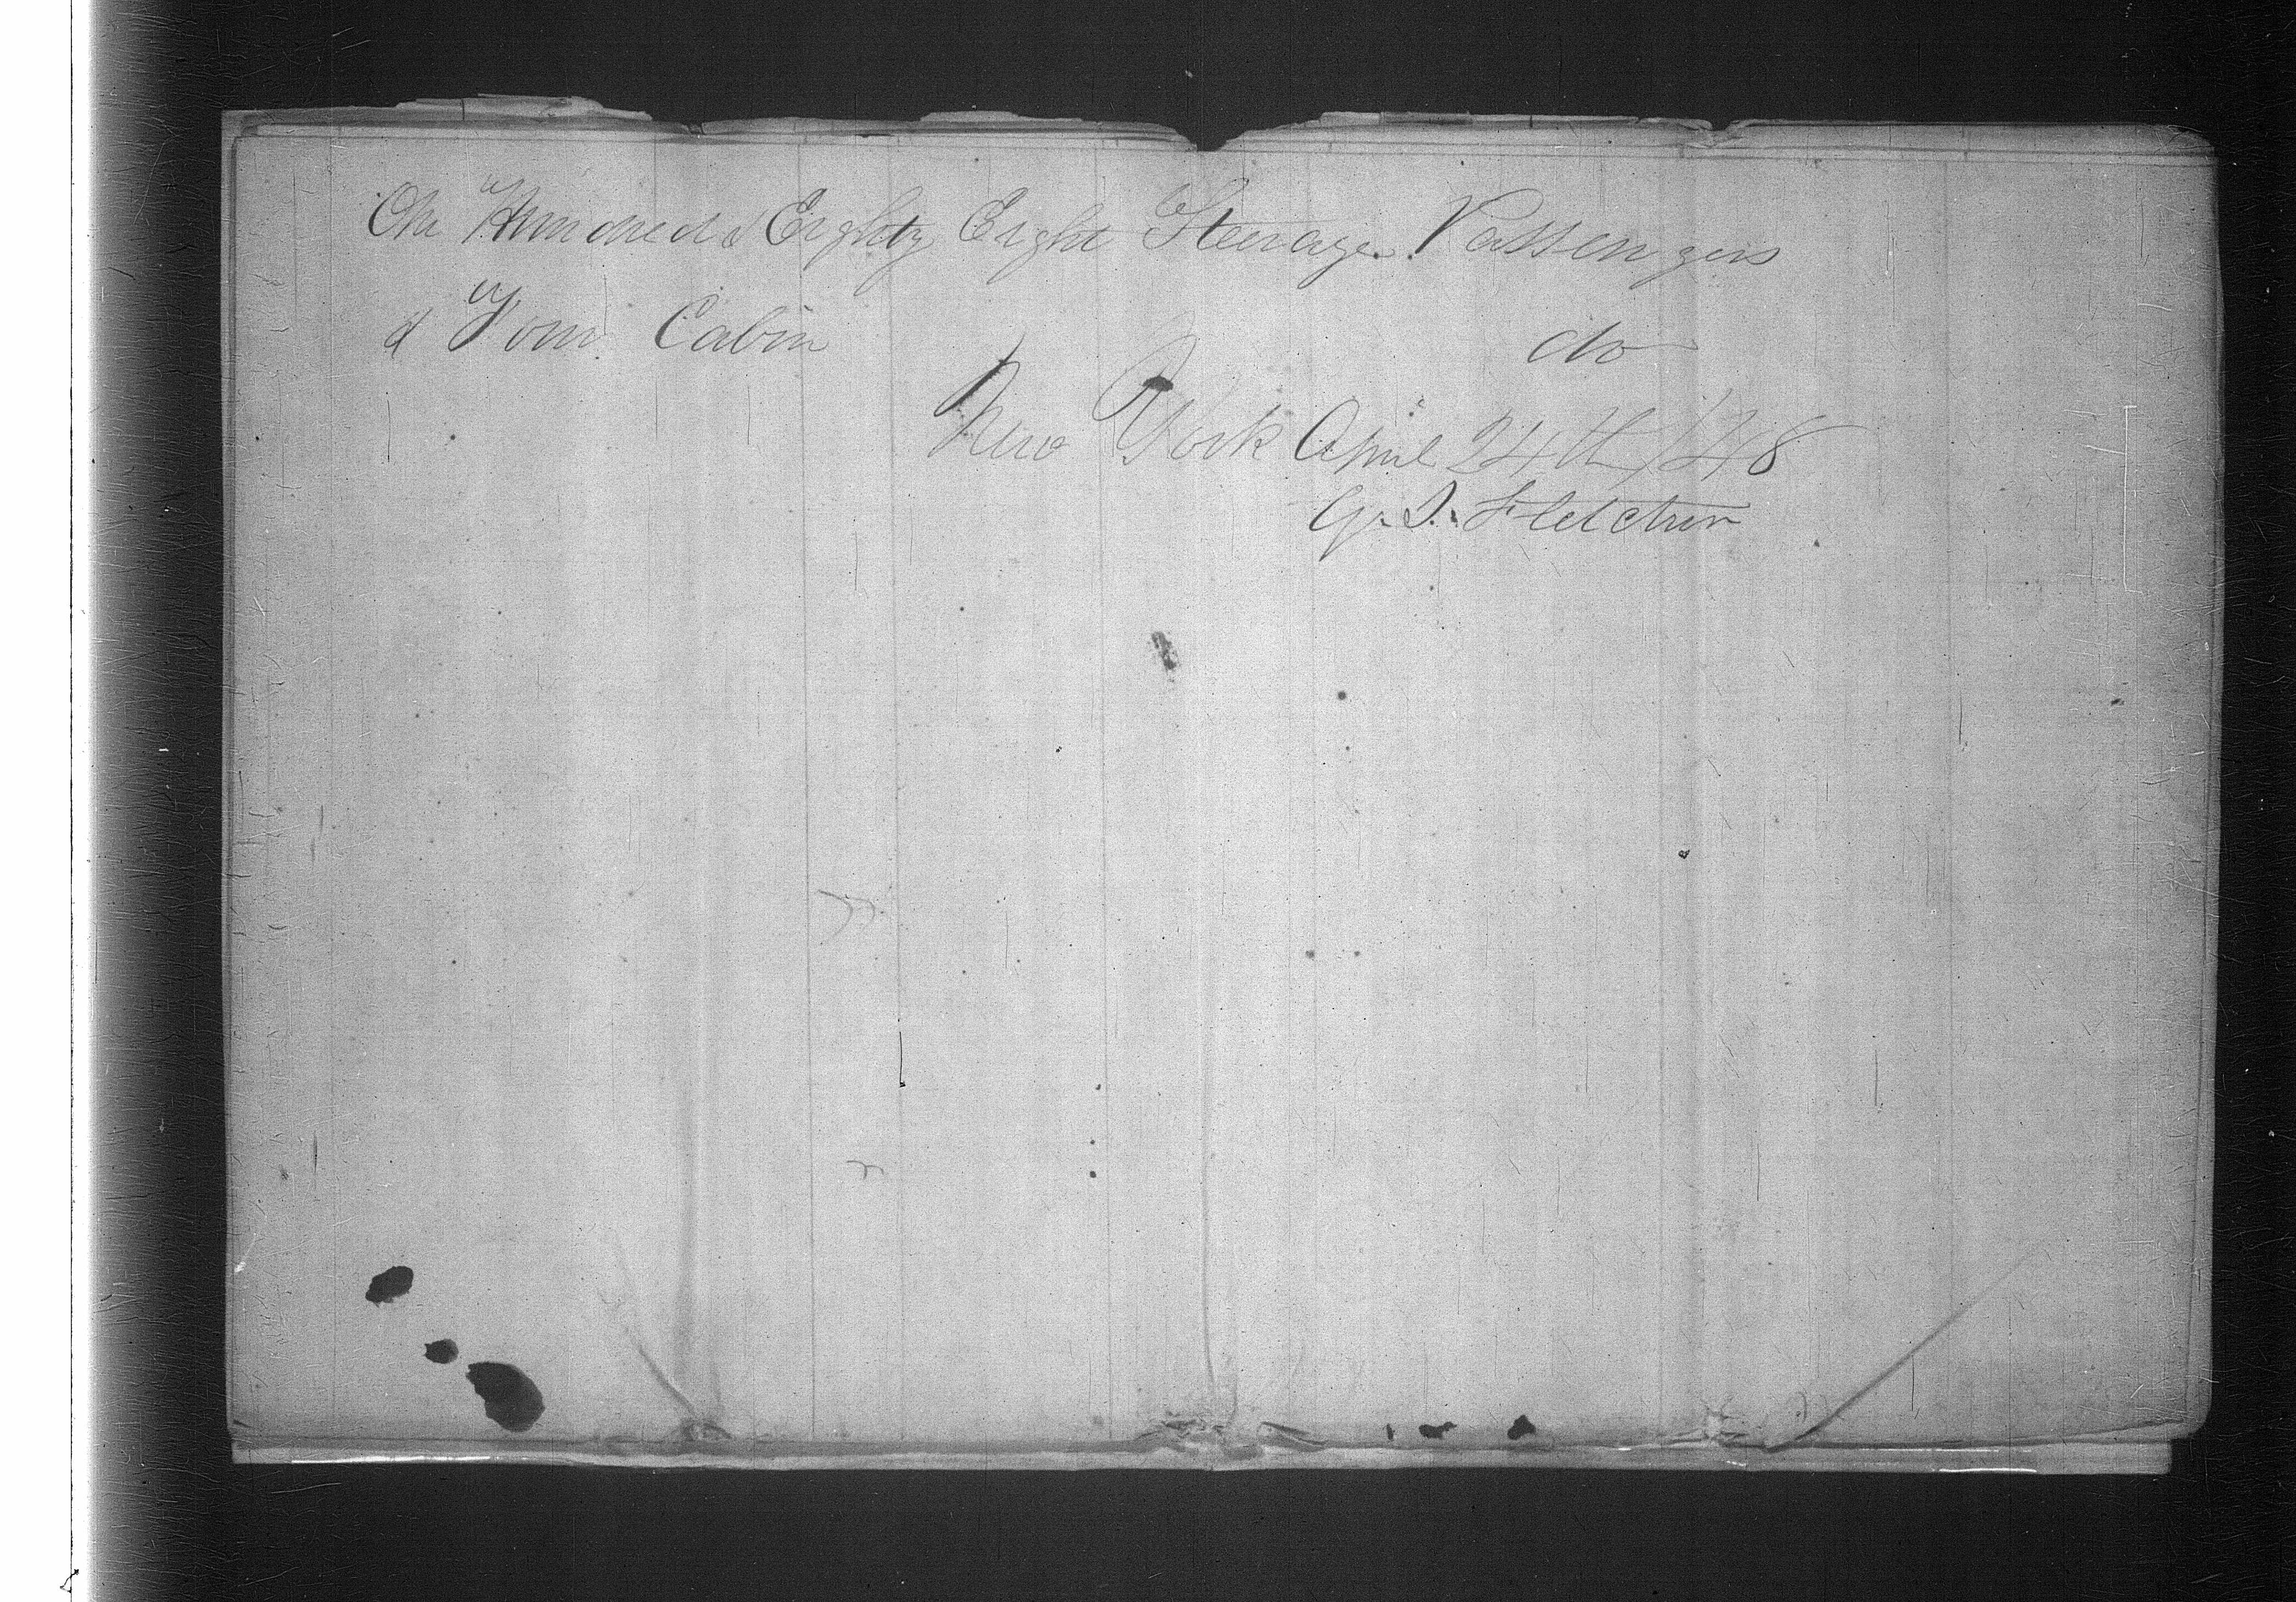 One Hundred & Eighty Eight Steerage Passengers
& Four Cabin do
New York April 24th /48
G. S. Fletcher